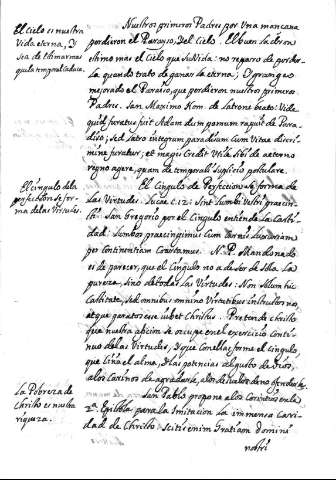 El cielo es nuestra
vida eterna, y
sea de estimar mas
que la temporal caduca.
Nuestros primeros Padres por una mançana
perdieron el Parayso, del Cielo. El buen ladron
estimo mas el Cielo que su Vida: no reparo de perder
la quando trato de ganar la eterna; y grangeo
mejorado el Parayso, que perdieron nuestros primeros
Padres. San Maximo Hom. de Latrone beato: Vide
quid furatus fuit Adam dum pomum rapuit de Para
diso; sed latro integrum paradisum cum vitae discri
mine furatur; et magis credit vitam sibi de aeterno
regno agere, quam de temporali supplicio postulare.
El cingulo de la
perfeccion se for
ma de las Virtudes.
El Cingulo de Perfeccion se forma de
las Virtudes. Lucae. 12: Sint Lumbi vestri praecin
cti. San Gregorio por el Cingulo entiende la Casti
dad: Lumbos praecingimus cum carnis luxuriam
per continentiam coarctamus. N. P. Mandona do
es de parecer, que el Cingulo no a de ser de sola la
pureza, sino de todas las Virtudes: Non solum hic
Castitate, sed omnibus omnino Virtutibus instructos nos,
atque paratos esse iubet Christus. Pretende christo
que nuestra aficion se ocupe en el exercicio conti
nuo de las Virtudes, y que con ellas forme el cingulo,
que ciña el alma, y las potencias al gusto de Dios,
a los cariños de agradarle, a los desvelos de no ofenderle.
La Pobreza de
Christo es nuestra
riqueza.
San Pablo propone a los Corintios en la
2ª Epistola para la Imitacion la immensa Cari
dad de Christo: scitis enim Gratiam domini
nostri